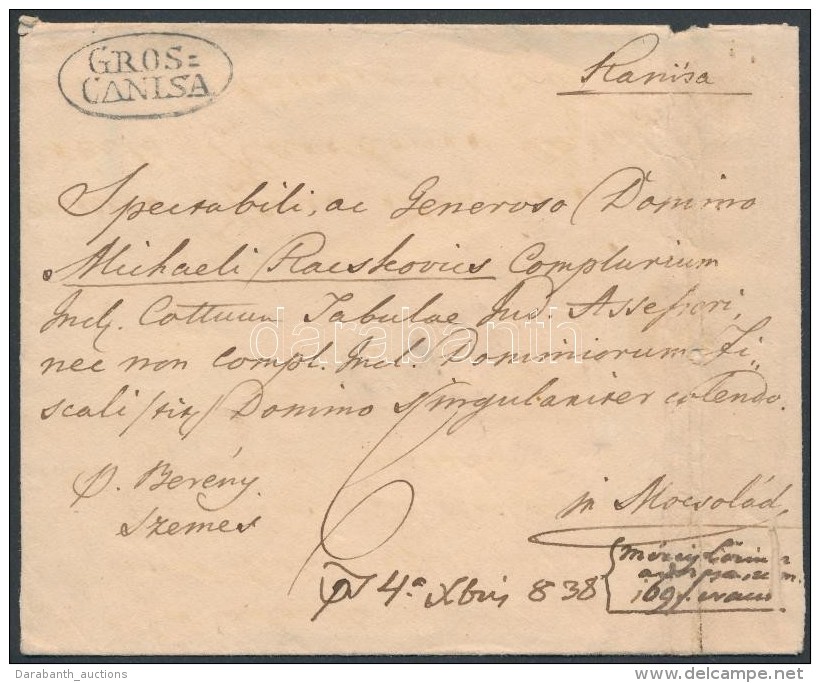 GROS=
CANISA
Kanísa
Spectabili, ac Generoso Domino
Michaeli Racskovics Complurium
Incl. Cottuum Tabulae Jud. Assessori,
nec non compl. Incl. Dominiorum Fi„
scali /tit/ Domino singulariter colendo.
p. Berény
Szemes
in Mocsolád
4ª Xbris 838
darabanth
Darabanth_auctions
www.delcampe.net